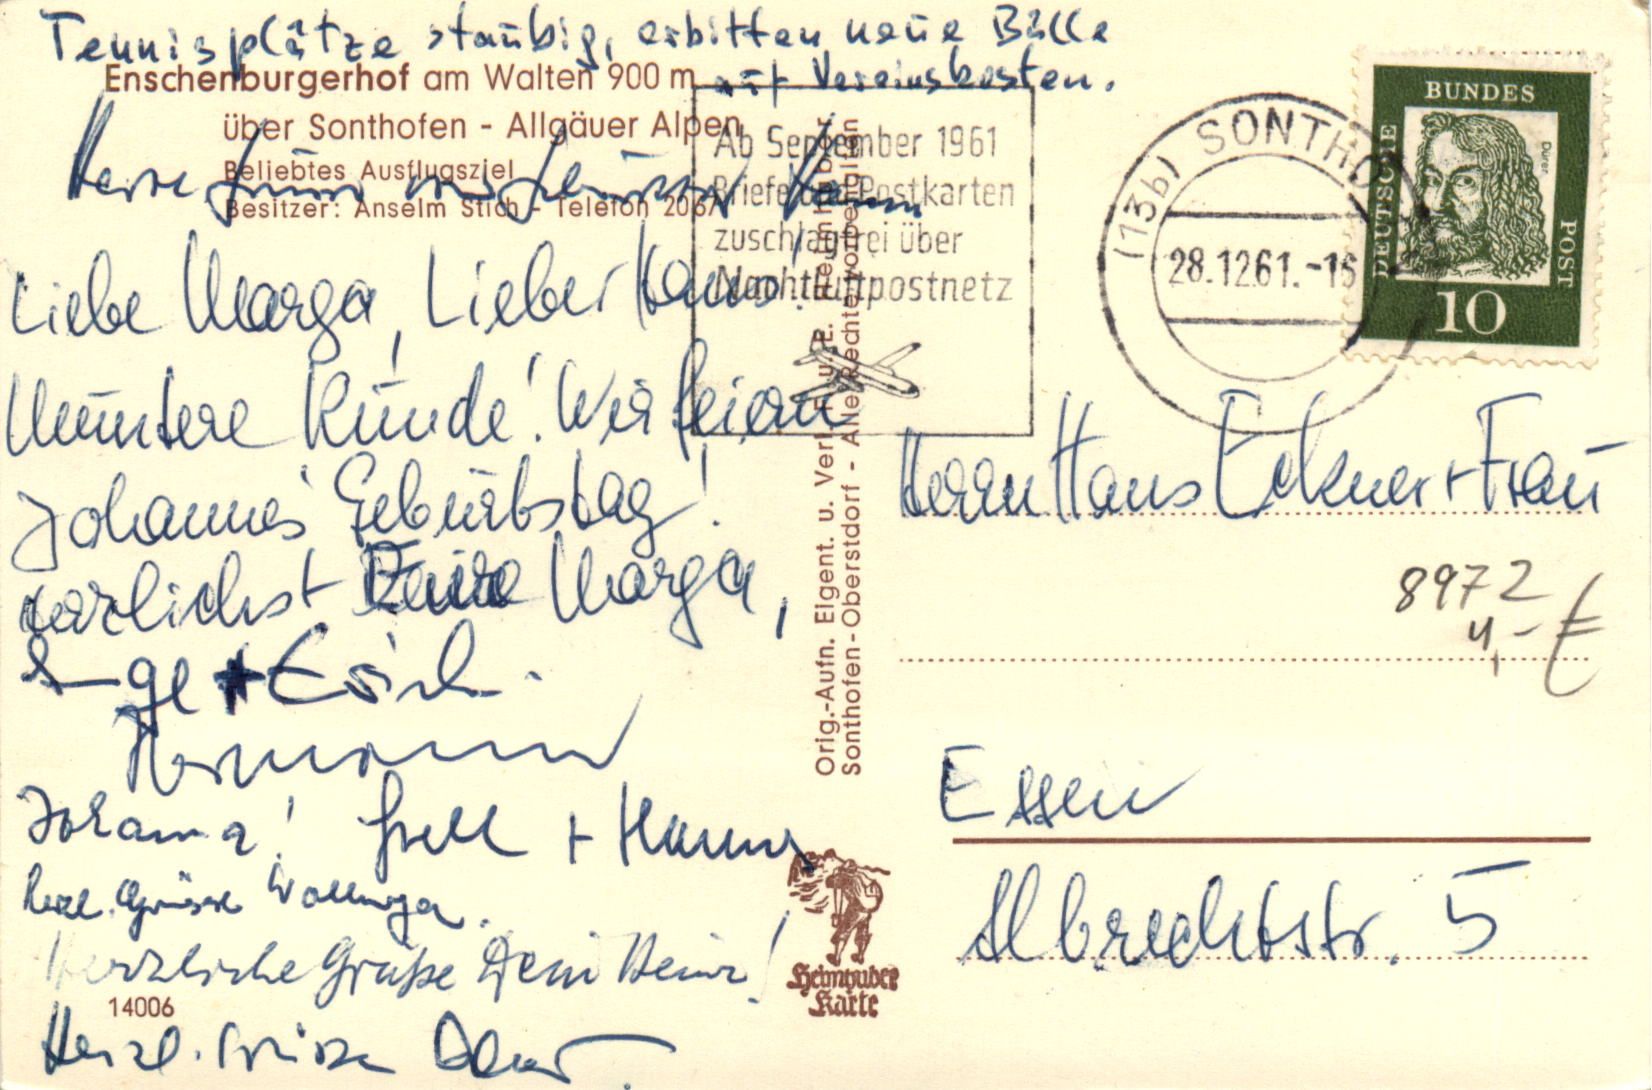 Tennisplätze staubig, erbitten neue Bälle
auf Vereinskosten.
Enschenburgerhof am Walten 900 m
über Sonthofen - Allgäuer Alpen
Beliebtes Ausflugsziel
Besitzer: Anselm Stich - Telefon 2067
Liebe Marga, Lieber Hans!
Muntere Runde! Wir feiern
Johannes' Geburtstag!
Herzlichst Eure Marga,
Inge + Erich.
Hermann
Johanna! + Hanns
Herzl. Grüsse
Herzliche Grüße Dein Heinz!
Herzl. Grüsse
14006
Ab September 1961
Briefe und Postkarten
zuschlagfrei über
Nachtluftpostnetz
Orig.-Aufn. Eigent. u. Verl. F. u. E. Heimhuber
Sonthofen-Oberstdorf - Alle Rechte vorbehalten
Heimhuber
Karte
(13b) SONTHOFEN
28.12.61.-16
DEUTSCHE
BUNDES
POST
Dürer
10
Herrn Hans Eckner + Frau
8972
4,- €
Essen
Albrechtstr. 5